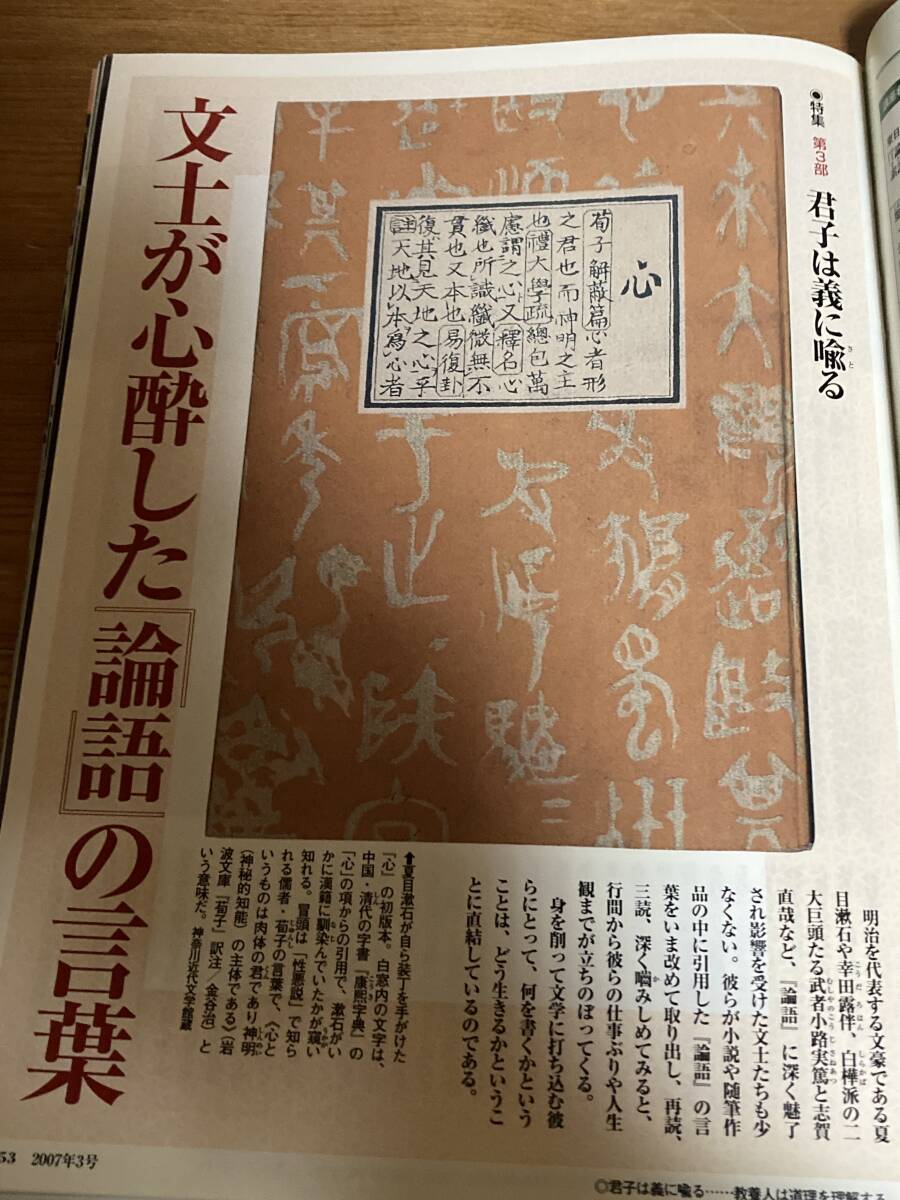 ◉特集 第3部 君子は義に喩る
文士が心酔した『論語』の言葉
心
荀子解蔽篇心者形
之君也而神明之主
也禮大學疏總包萬
慮謂之心又釋名心
纖也所識纖微無不
貫也又本也易復卦
復其見天地之心乎
註天地以本爲心者
明治を代表する文豪である夏
目漱石や幸田露伴、白樺派の二
大巨頭たる武者小路実篤と志賀
直哉など、『論語』に深く魅了
され影響を受けた文士たちも少
なくない。彼らが小説や随筆作
品の中に引用した『論語』の言
葉をいま改めて取り出し、再読、
三読、深く嚙みしめてみると、
行間から彼らの仕事ぶりや人生
観までが立ちのぼってくる。
身を削って文学に打ち込む彼
らにとって、何を書くかという
ことは、どう生きるかというこ
とに直結しているのである。
⬆夏目漱石が自ら装丁を手がけた
『心』の初版本。白窓内の文字は、
中国・清代の字書『康熙字典』の
「心」の項からの引用で、漱石がい
かに漢籍に馴染んでいたかが窺い
知れる。冒頭は「性悪説」で知ら
れる儒者・荀子の言葉で、〈心と
いうものは肉体の君であり神明
(神秘的知能)の主体である〉(岩
波文庫『荀子』訳注/金谷治)と
いう意味だ。神奈川近代文学館蔵
53 2007年3号
◎君子は義に喩る……教養人は道理を理解する